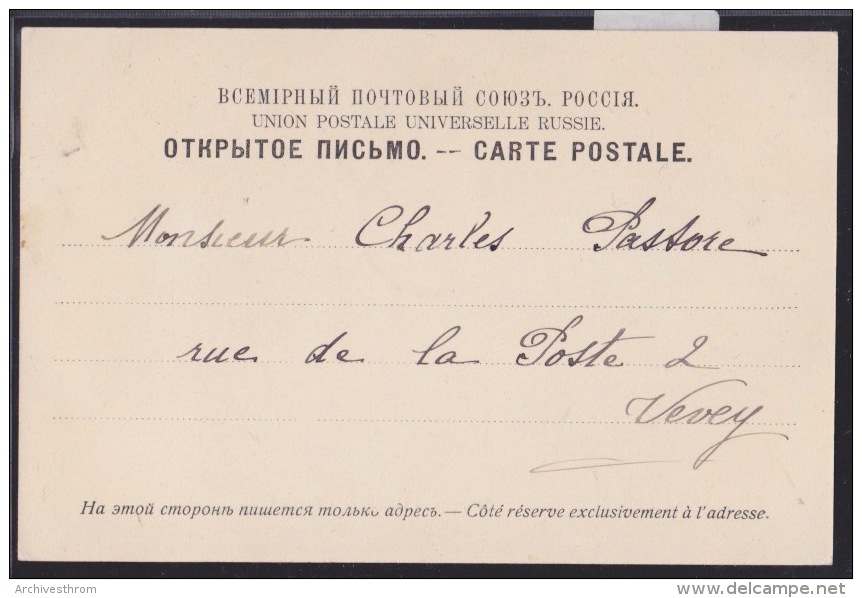 ВСЕМІРНЫЙ ПОЧТОВЫЙ СОЮЗЪ. РОССІЯ.
UNION POSTALE UNIVERSELLE RUSSIE.
ОТКРЫТОЕ ПИСЬМО. -- CARTE POSTALE.
Monsieur Charles Pastore
rue de la Poste 2
Vevey
На этой сторонѣ пишется только адресъ. — Côté réserve exclusivement à l'adresse.
Archivesthrom
www.delcampe.net